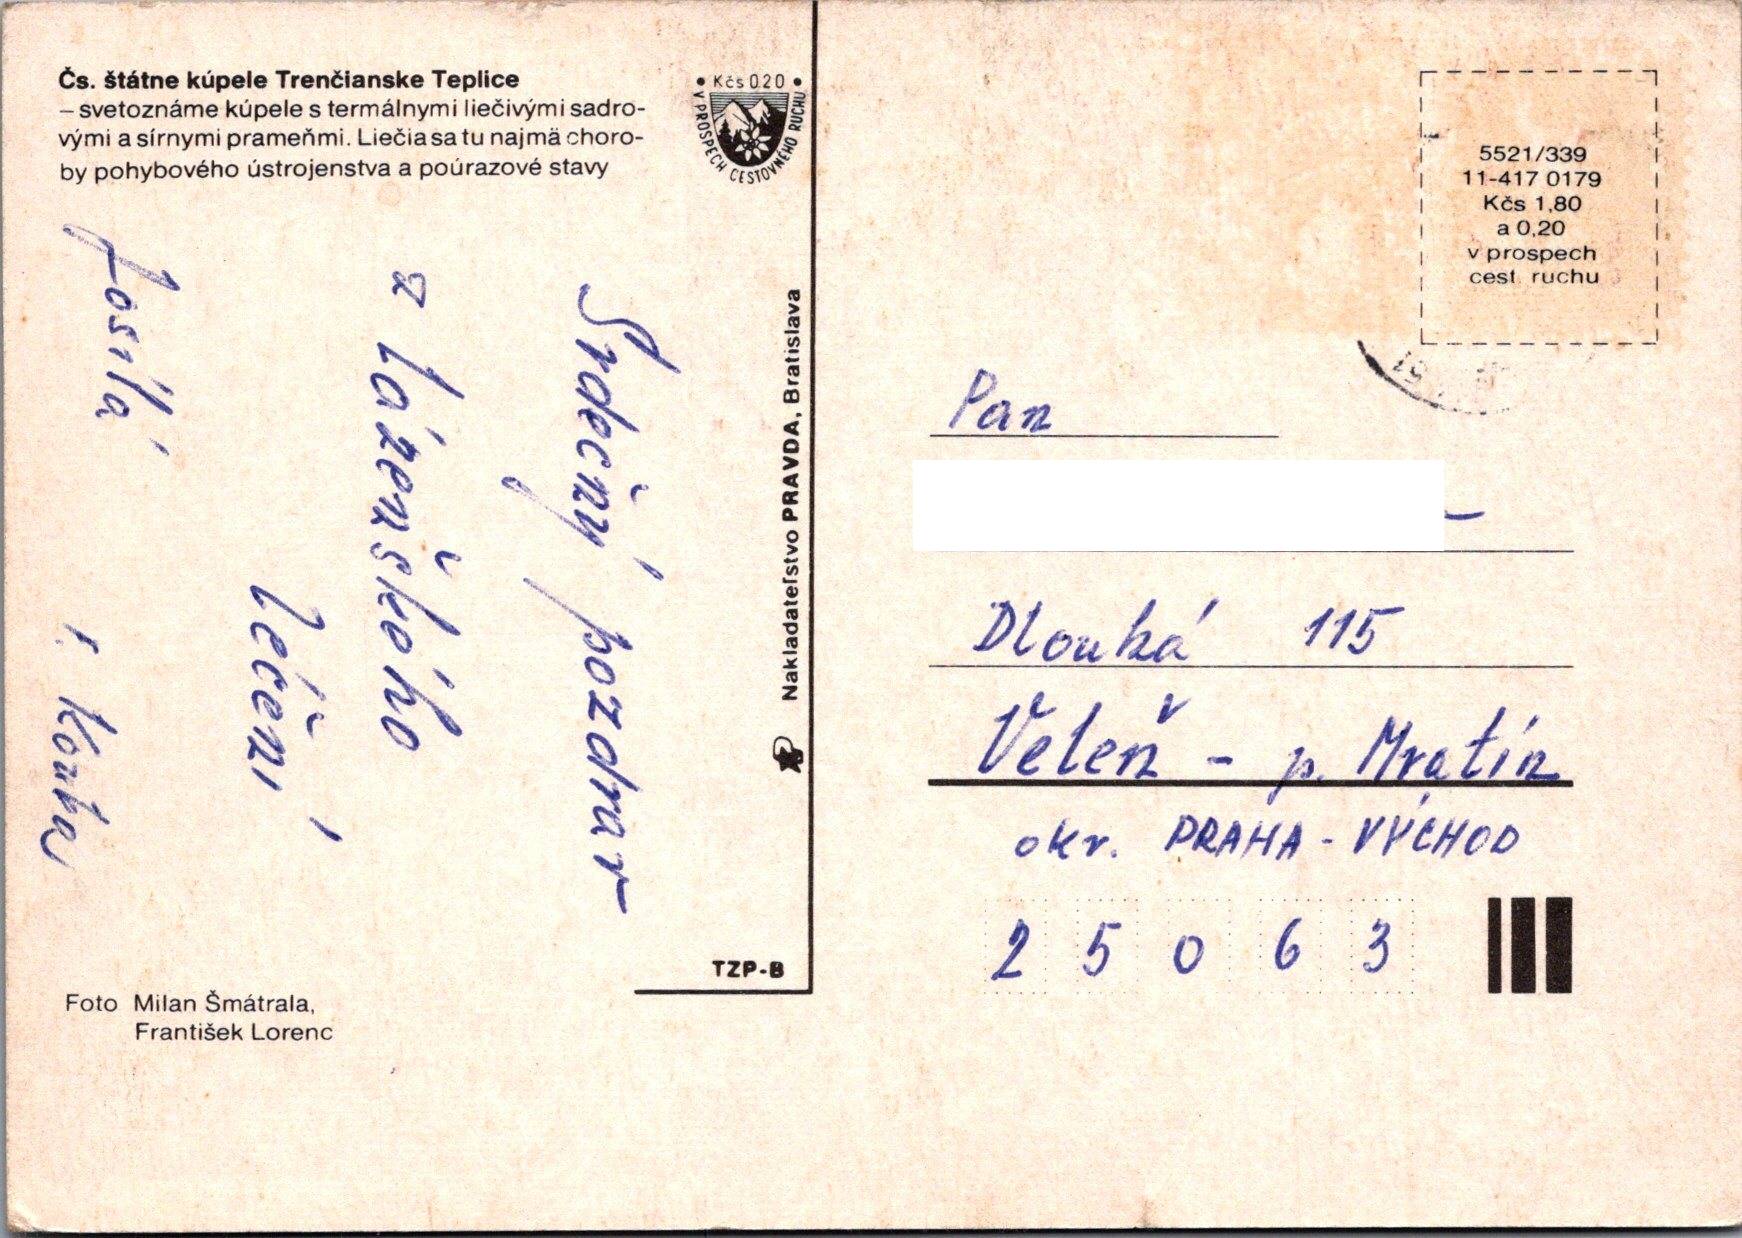 Čs. štátne kúpele Trenčianske Teplice
– svetoznáme kúpele s termálnymi liečivými sadro-
vými a sírnymi prameňmi. Liečia sa tu najmä choro-
by pohybového ústrojenstva a poúrazové stavy
• Kčs 0.20 •
V PROSPECH CESTOVNÉHO RUCHU
Srdečný pozdrav
z lázeňského
léčení
posílá
Kouba
Foto Milan Šmátrala,
František Lorenc
Nakladateľstvo PRAVDA, Bratislava
TZP-B
5521/339
11-417 0179
Kčs 1,80
a 0,20
v prospech
cest. ruchu
Pan
Dlouhá 115
Veleň - p. Mratín
okr. PRAHA - VÝCHOD
2 5 0 6 3